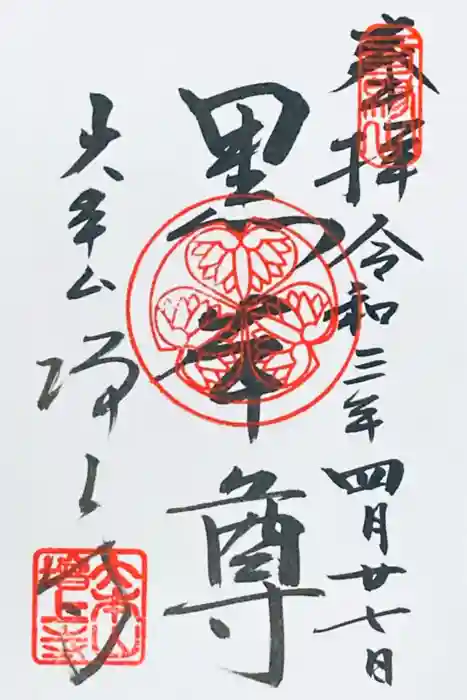 奉拝 令和三年四月廿七日
黒本尊
大本山 増上寺
大本山増上寺